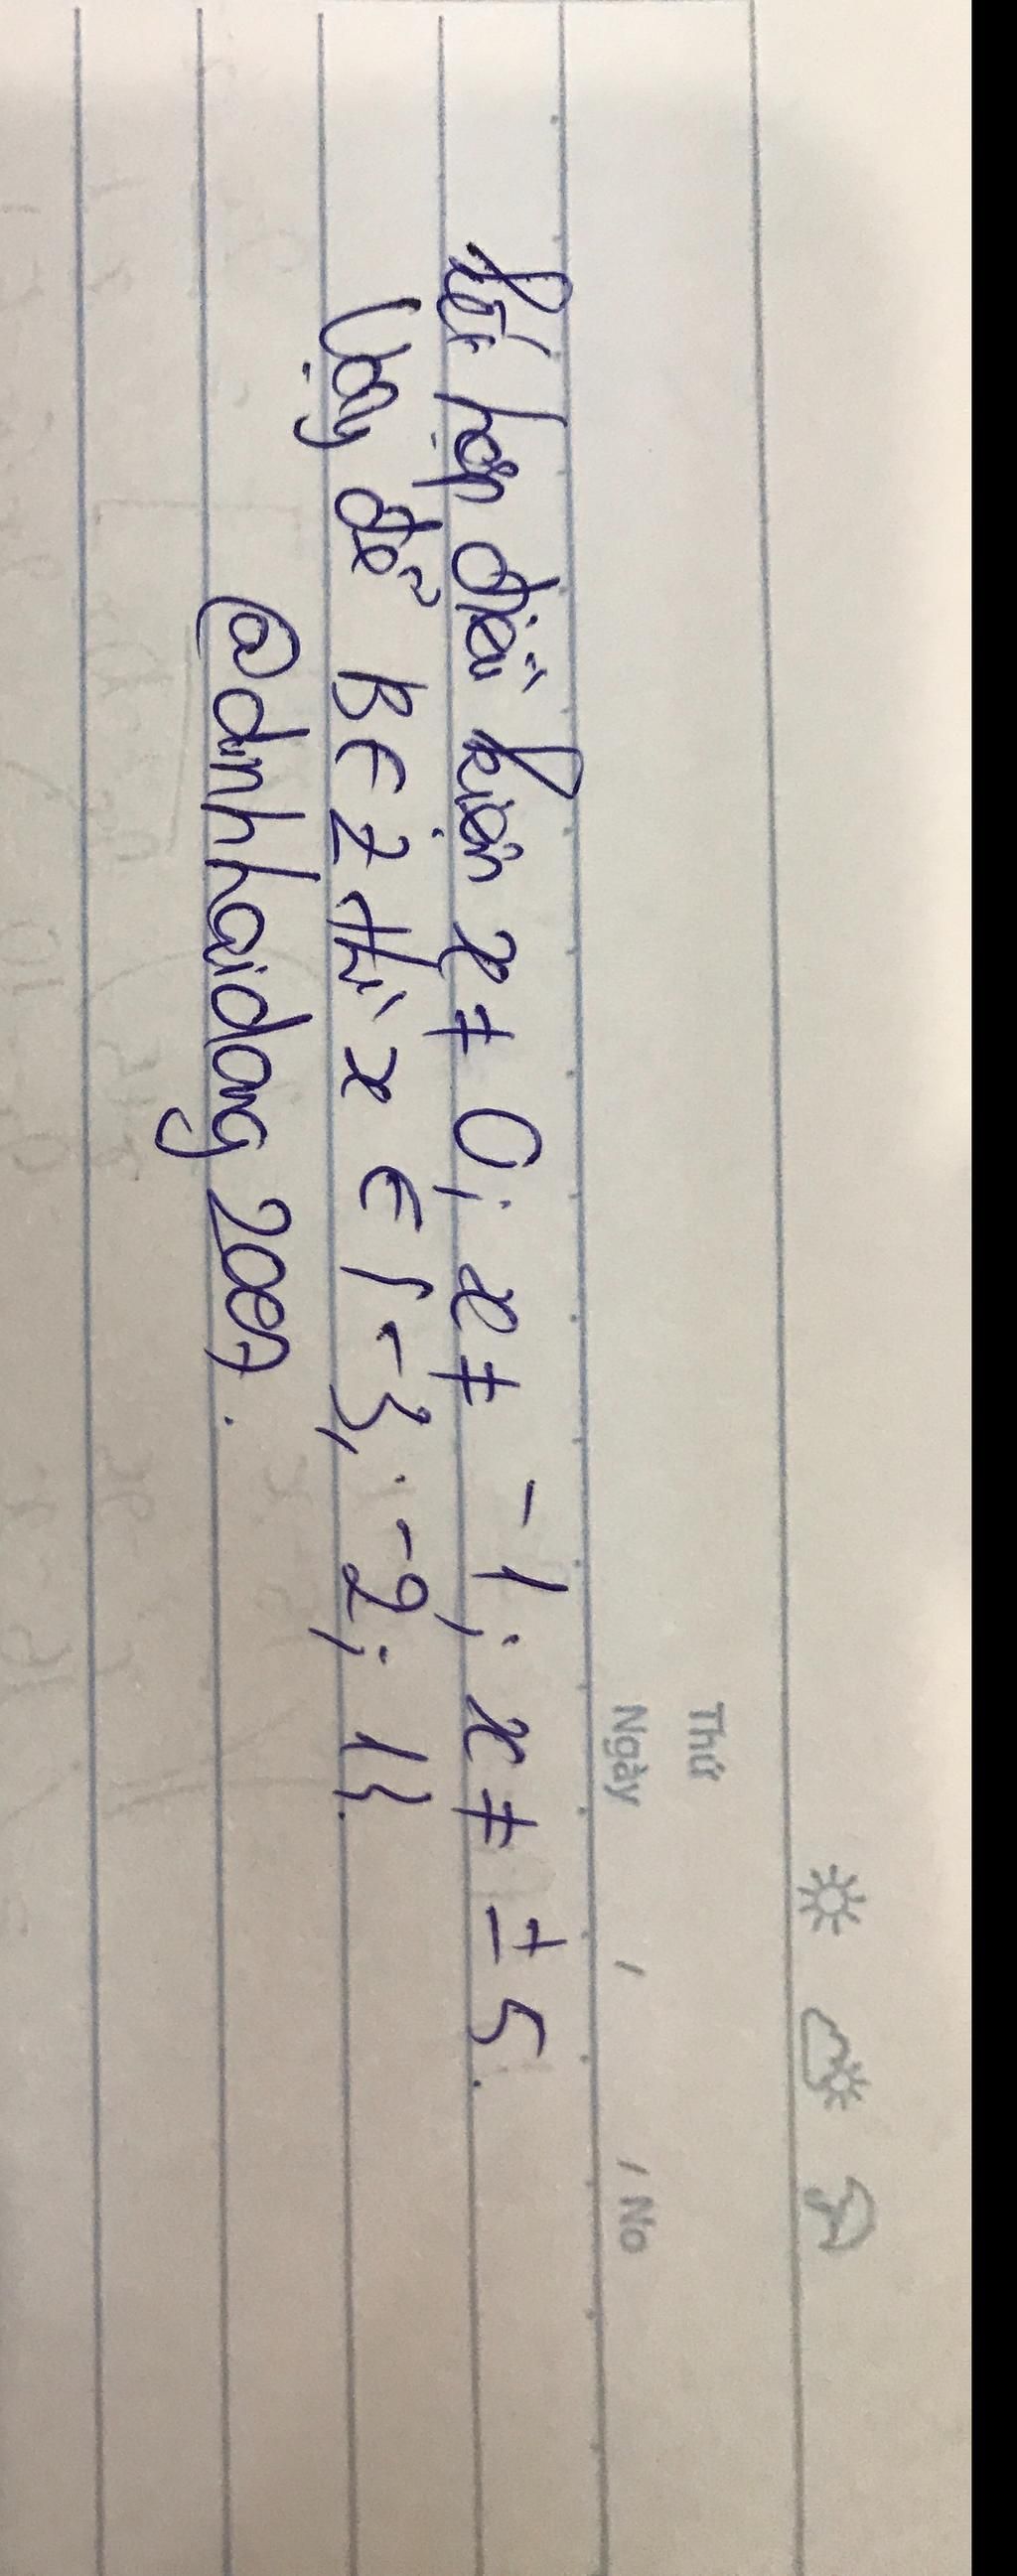 Thứ
Ngày / / No
Kết hợp điều kiện x ≠ 0; x ≠ -1; x ≠ ± 5.
Vậy để B ∈ Z thì x ∈ {-3; -2; 1}.
@dinhhaidang 2007.